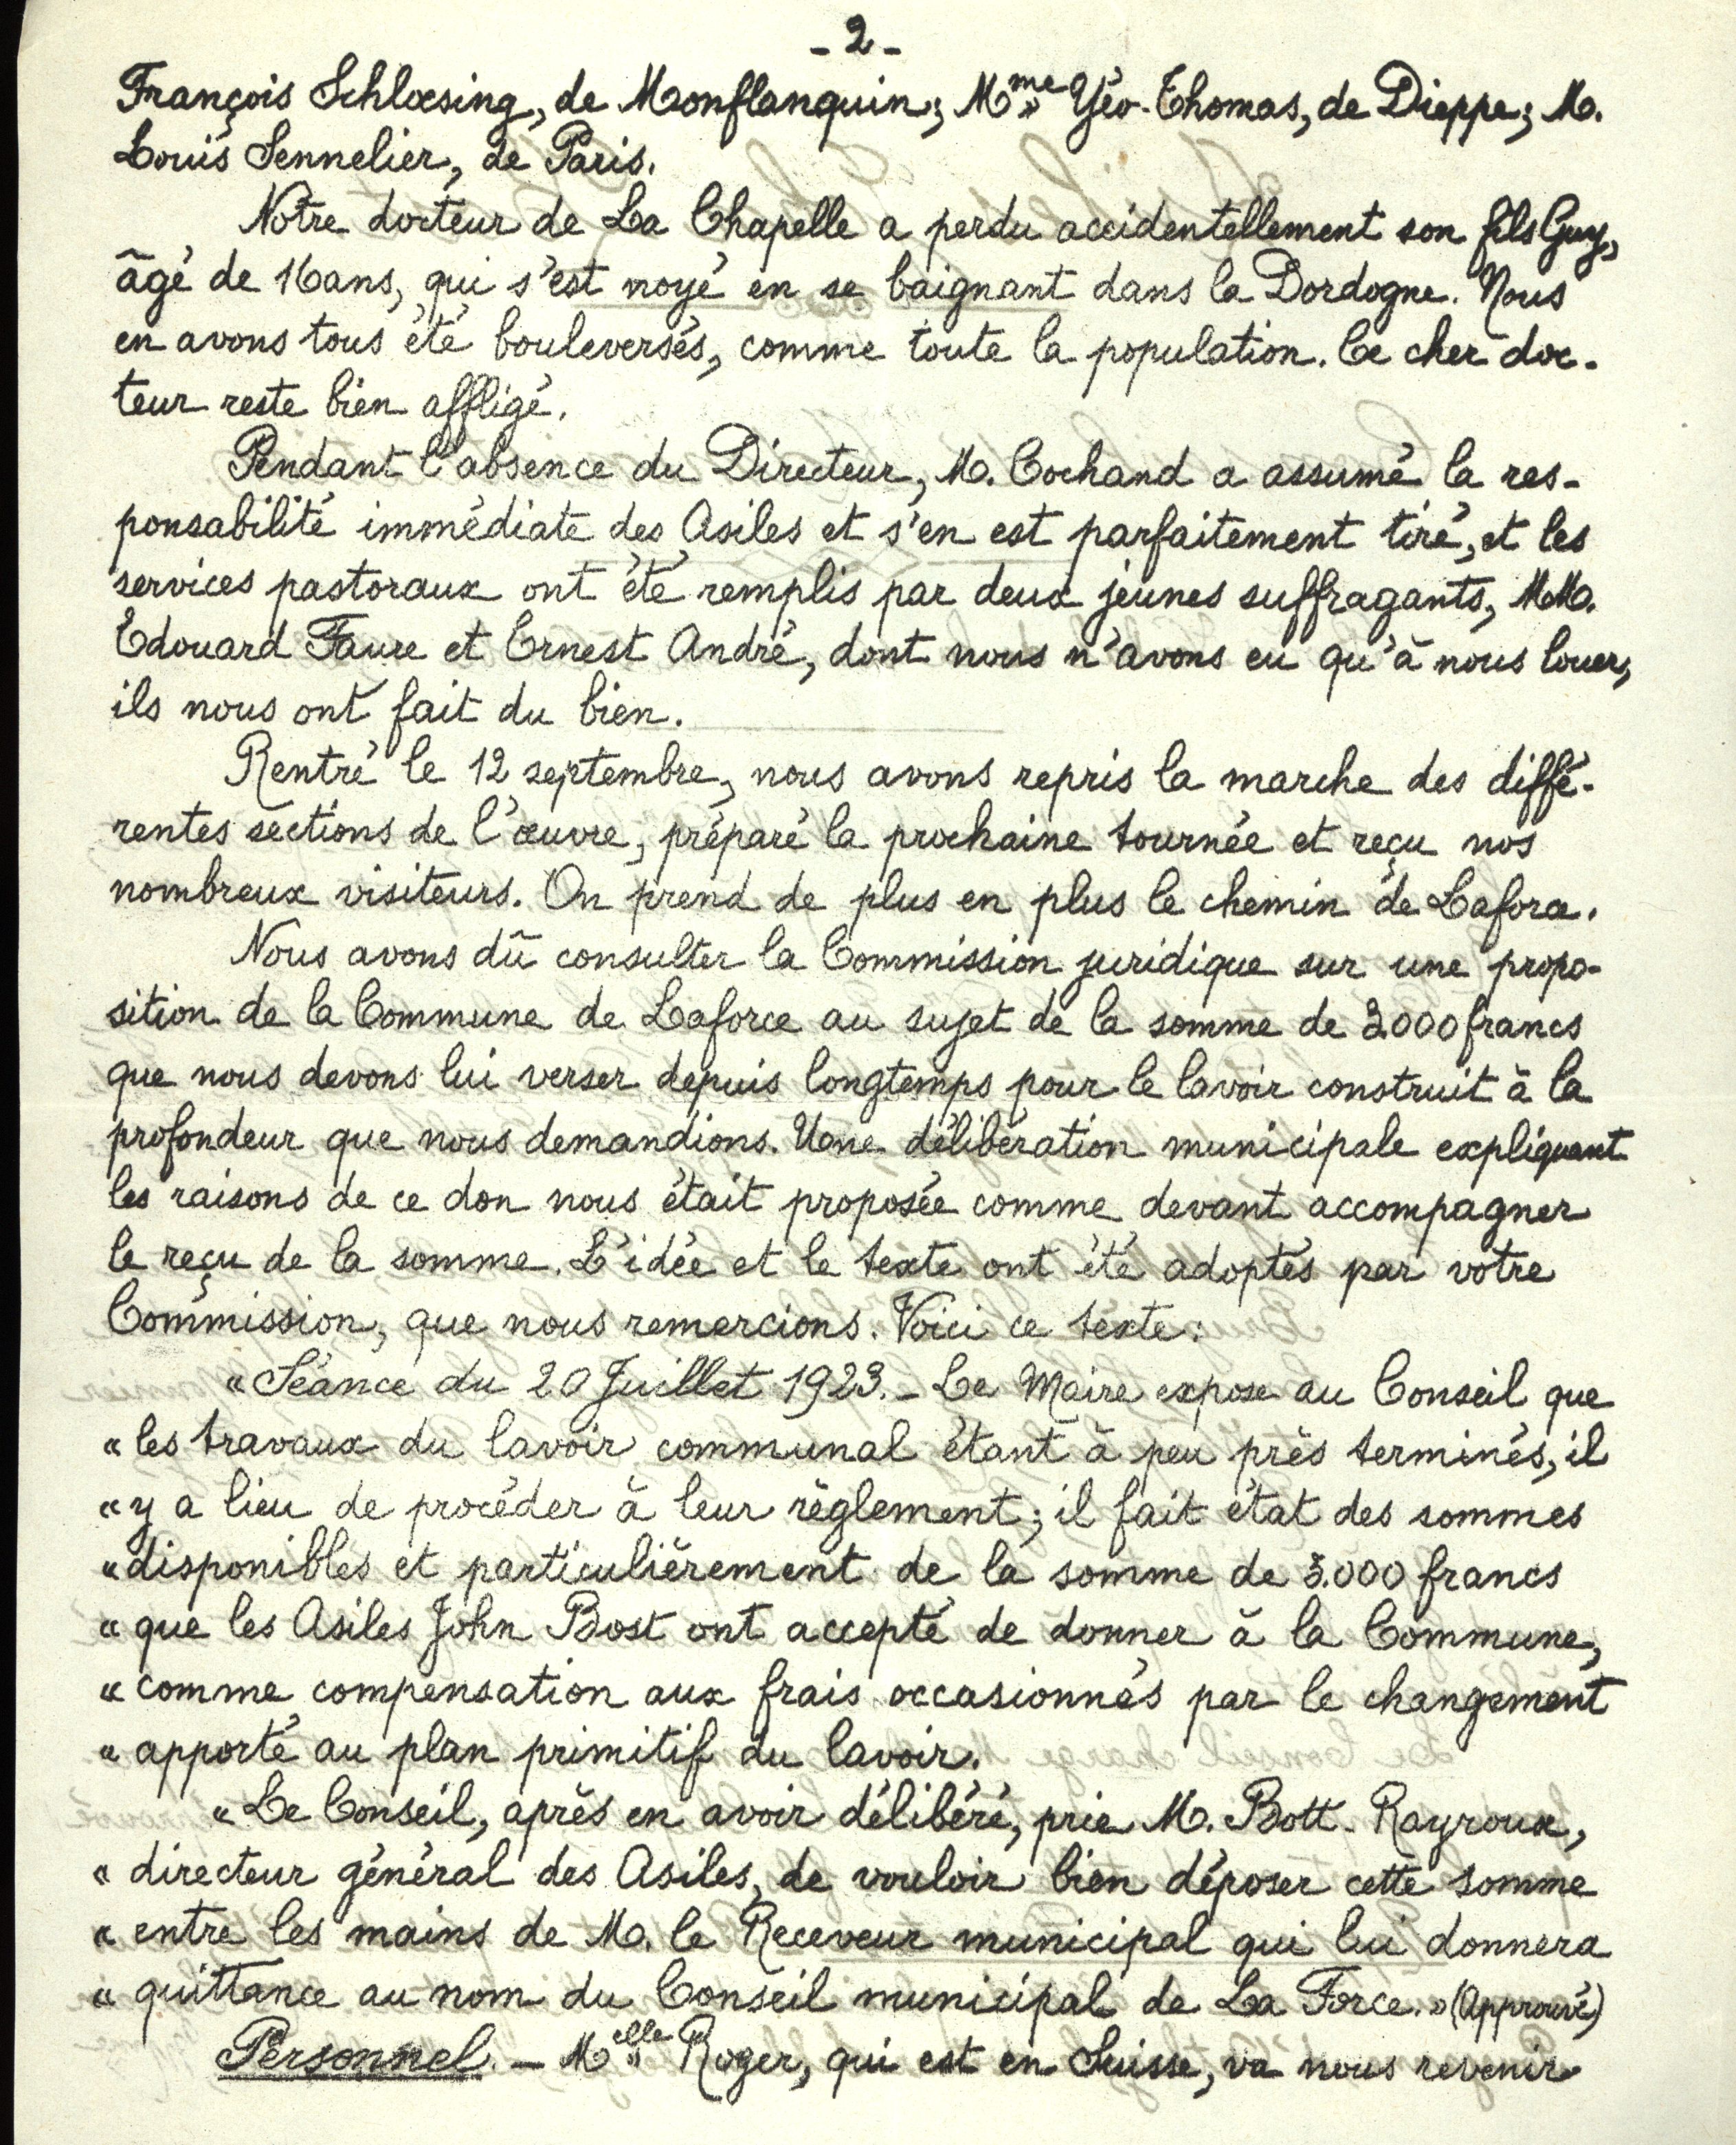 - 2 -
François Schlœsing, de Monflanquin; Mme Yéo-Thomas, de Dieppe; M.
Louis Sennelier, de Paris.
Notre docteur de La Chapelle a perdu accidentellement son fils Guy,
âgé de 16 ans, qui s'est noyé en se baignant dans la Dordogne. Nous
en avons tous été bouleversés, comme toute la population. Ce cher doc-
teur reste bien affligé.
Pendant l'absence du Directeur, M. Cochand a assumé la res-
ponsabilité immédiate des Asiles et s'en est parfaitement tiré, et les
services pastoraux ont été remplis par deux jeunes suffragants, MM.
Edouard Faure et Ernest André, dont nous n'avons eu qu'à nous louer,
ils nous ont fait du bien.
Rentré le 12 septembre, nous avons repris la marche des diffé-
rentes sections de l'œuvre, préparé la prochaine tournée et reçu nos
nombreux visiteurs. On prend de plus en plus le chemin de Laforce.
Nous avons dû consulter la Commission juridique sur une propo-
sition de la Commune de Laforce au sujet de la somme de 3.000 francs
que nous devons lui verser depuis longtemps pour le lavoir construit à la
profondeur que nous demandions. Une délibération municipale expliquant
les raisons de ce don nous était proposée comme devant accompagner
le reçu de la somme. L'idée et le texte ont été adoptés par votre
Commission, que nous remercions. Voici ce texte:
« Séance du 20 Juillet 1923. - Le Maire expose au Conseil que
« les travaux du lavoir communal étant à peu près terminés, il
« y a lieu de procéder à leur règlement; il fait état des sommes
« disponibles et particulièrement de la somme de 3.000 francs
« que les Asiles John Bost ont accepté de donner à la Commune,
« comme compensation aux frais occasionnés par le changement
« apporté au plan primitif du lavoir.
« Le Conseil, après en avoir délibéré, prie M. Bott-Rayroux,
« directeur général des Asiles, de vouloir bien déposer cette somme
« entre les mains de M. le Receveur municipal qui lui donnera
« quittance au nom du Conseil municipal de La Force. » (Approuvé)
Personnel. - Melle Roger, qui est en Suisse, va nous revenir